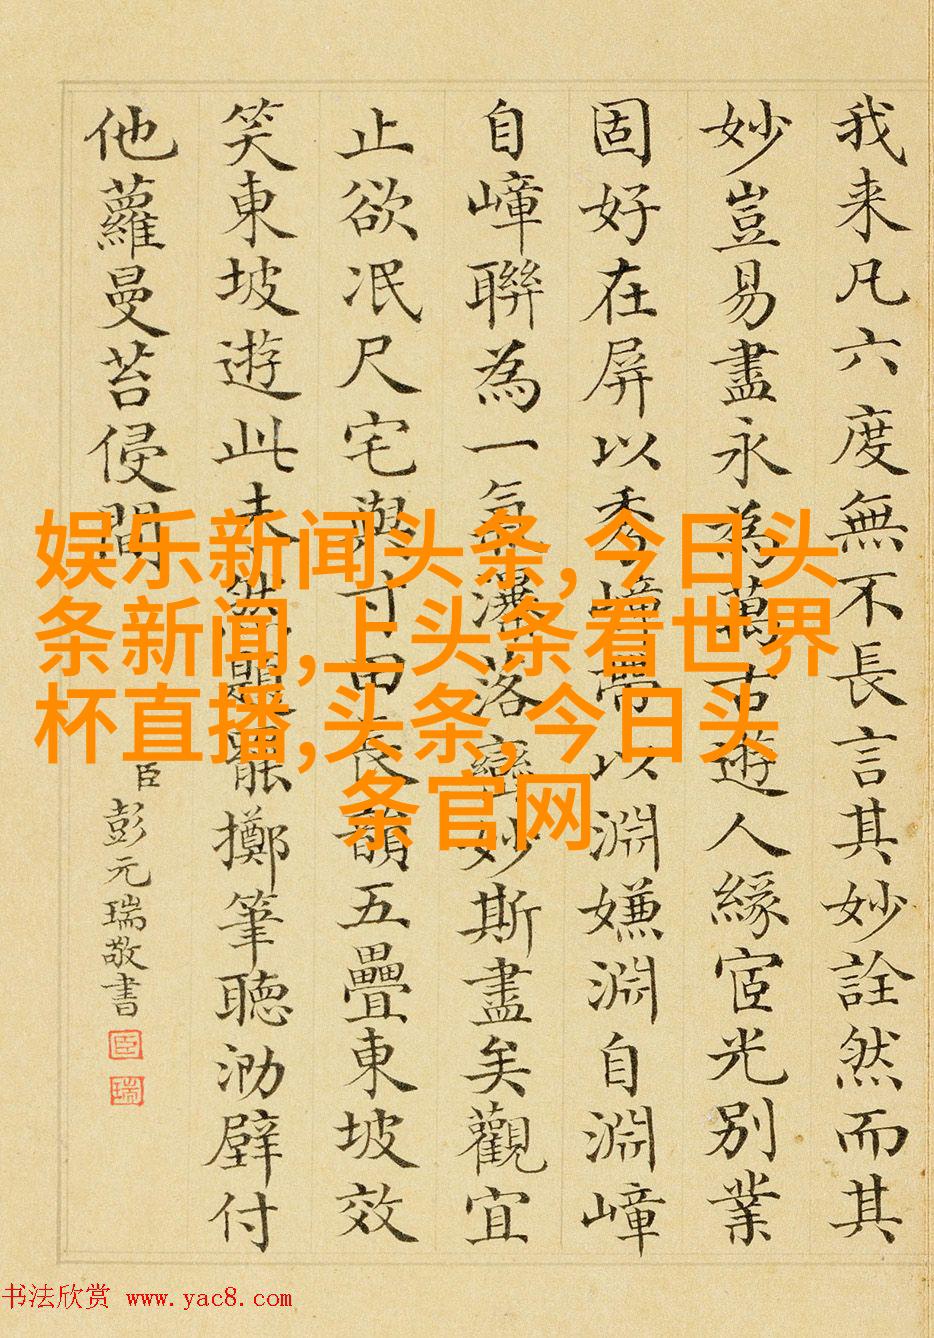 我来凡六度無不長言其妙詮然而其
妙豈易盡永為萬古遊人緣宧光別業
固好在屏以秀嶂帶以淵嫌淵自淵嶂
自嶂聯為一氣灑落巒妙斯盡矣觀宜
止欲泯尺宅與寸田長韻五疊東坡效
笑東坡遊此未題罷擲筆聽泐壁付
他蘿曼苔侵間
臣彭元瑞敬書
臣
瑞
娱乐新闻头条,今日头
条新闻,上头条看世界
杯直播,头条,今日头
条官网
书法欣赏 www.yac8.com